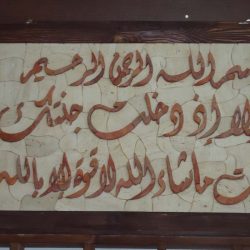 بسم الله الرحمن الرحيم
ولولا إذ دخلت جنتك
قلت ماشاء الله لا قوة إلا بالله